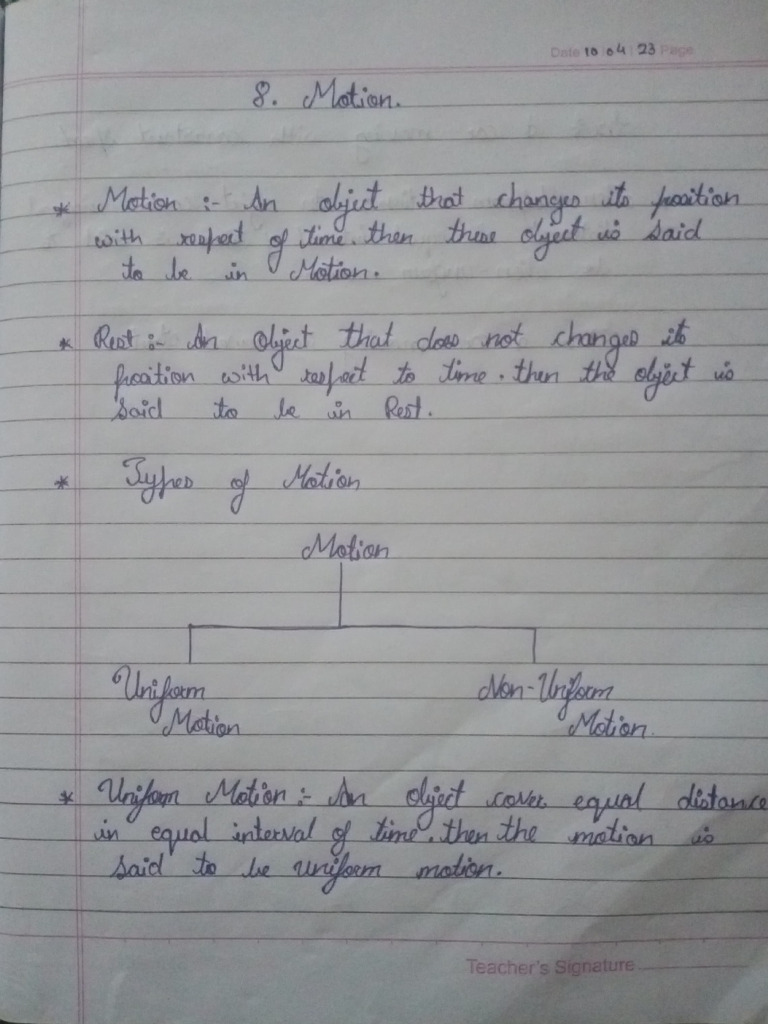 Date 10 04 23 Page
8. Motion.
* Motion :- An object that changes its position
with respect of time. then these object is said
to be in Motion.
* Rest :- An Object that does not changes its
position with respect to time. then the object is
said to be in Rest.
* Types of Motion
Motion
Uniform Non-Uniform
Motion Motion.
* Uniform Motion :- An object cover equal distance
in equal interval of time. then the motion is
said to be uniform motion.
Teacher's Signature